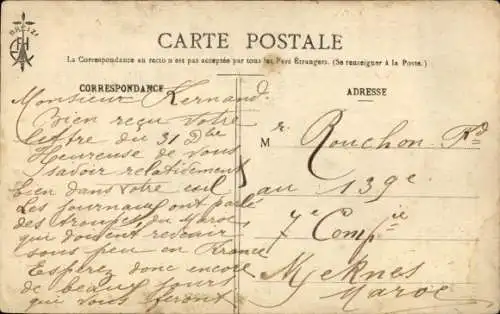 BREIZ
CARTE POSTALE
La Correspondance au recto n'est pas acceptée par tous les Pays Étrangers. (Se renseigner à la Poste.)
CORRESPONDANCE
Monsieur Fernand.
Bien reçu votre
lettre du 31 Dbre
Heureuse de vous
savoir relativement
bien dans votre
Les journaux ont parlé
des troupes du Maroc
qui doivent revenir
sous peu en France
Espérez donc encore
de beaux jours
qui vous feront
ADRESSE
Mr. Rouchon Fd
au 139e
7e Compie
Meknes
Maroc